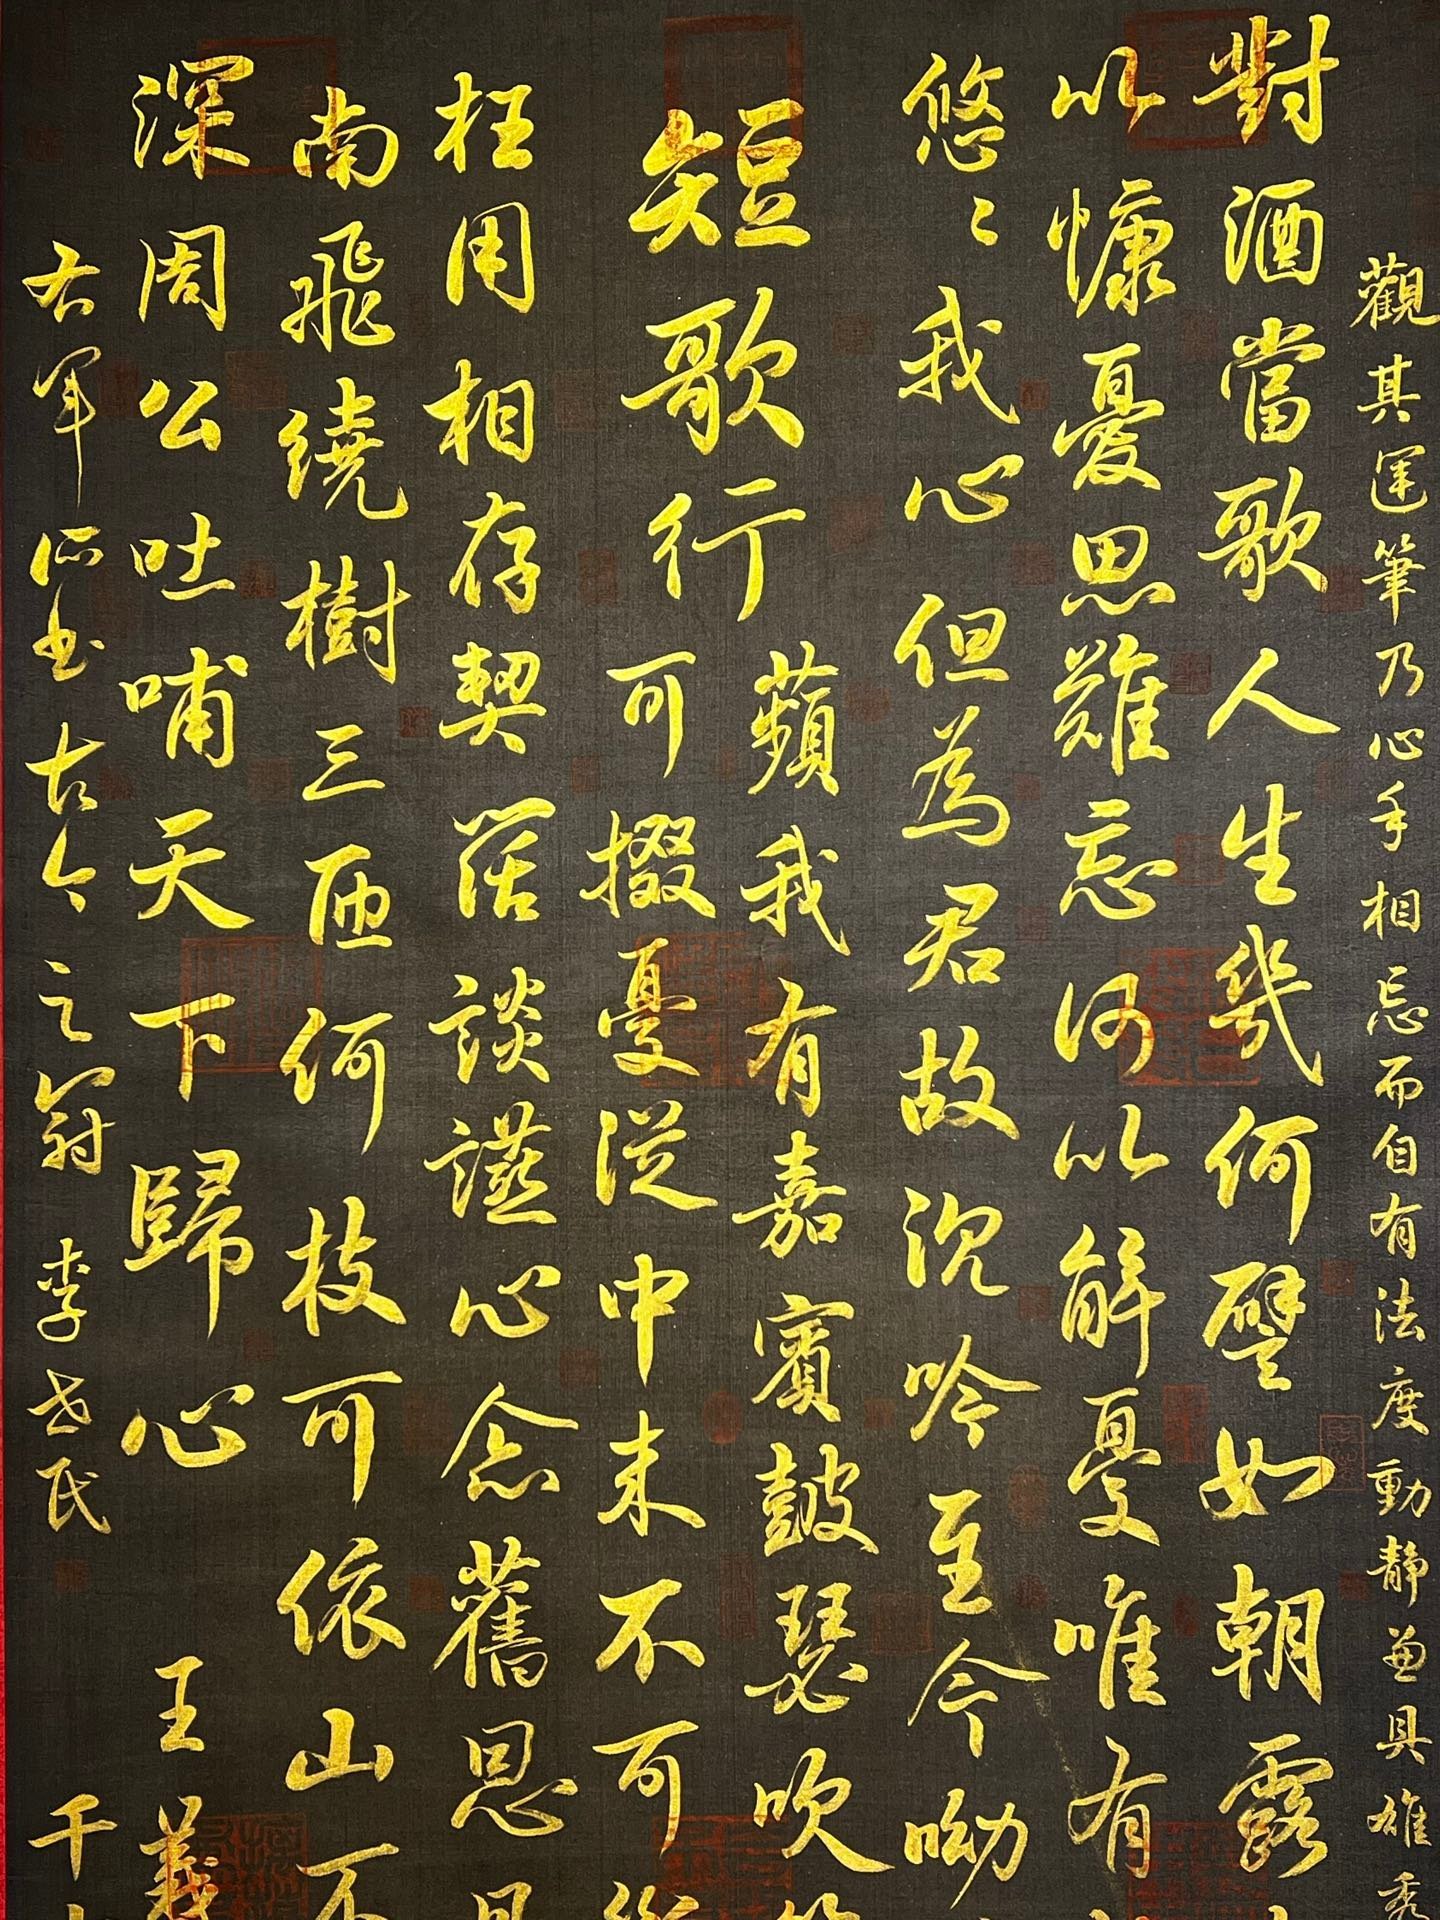 觀其運筆乃心手相忘而自有法度動静兼具雄秀
對酒當歌人生幾何譬如朝露
以慷憂思難忘何以解憂唯有
悠〻我心但為君故沉吟至今呦
蘋我有嘉賓鼓瑟吹
短歌行
可掇憂從中來不可
枉用相存契闊談讌心念舊恩
南飛繞樹三匝何枝可依山不
深周公吐哺天下歸心
王羲
右軍所書古今之冠 李世民
千